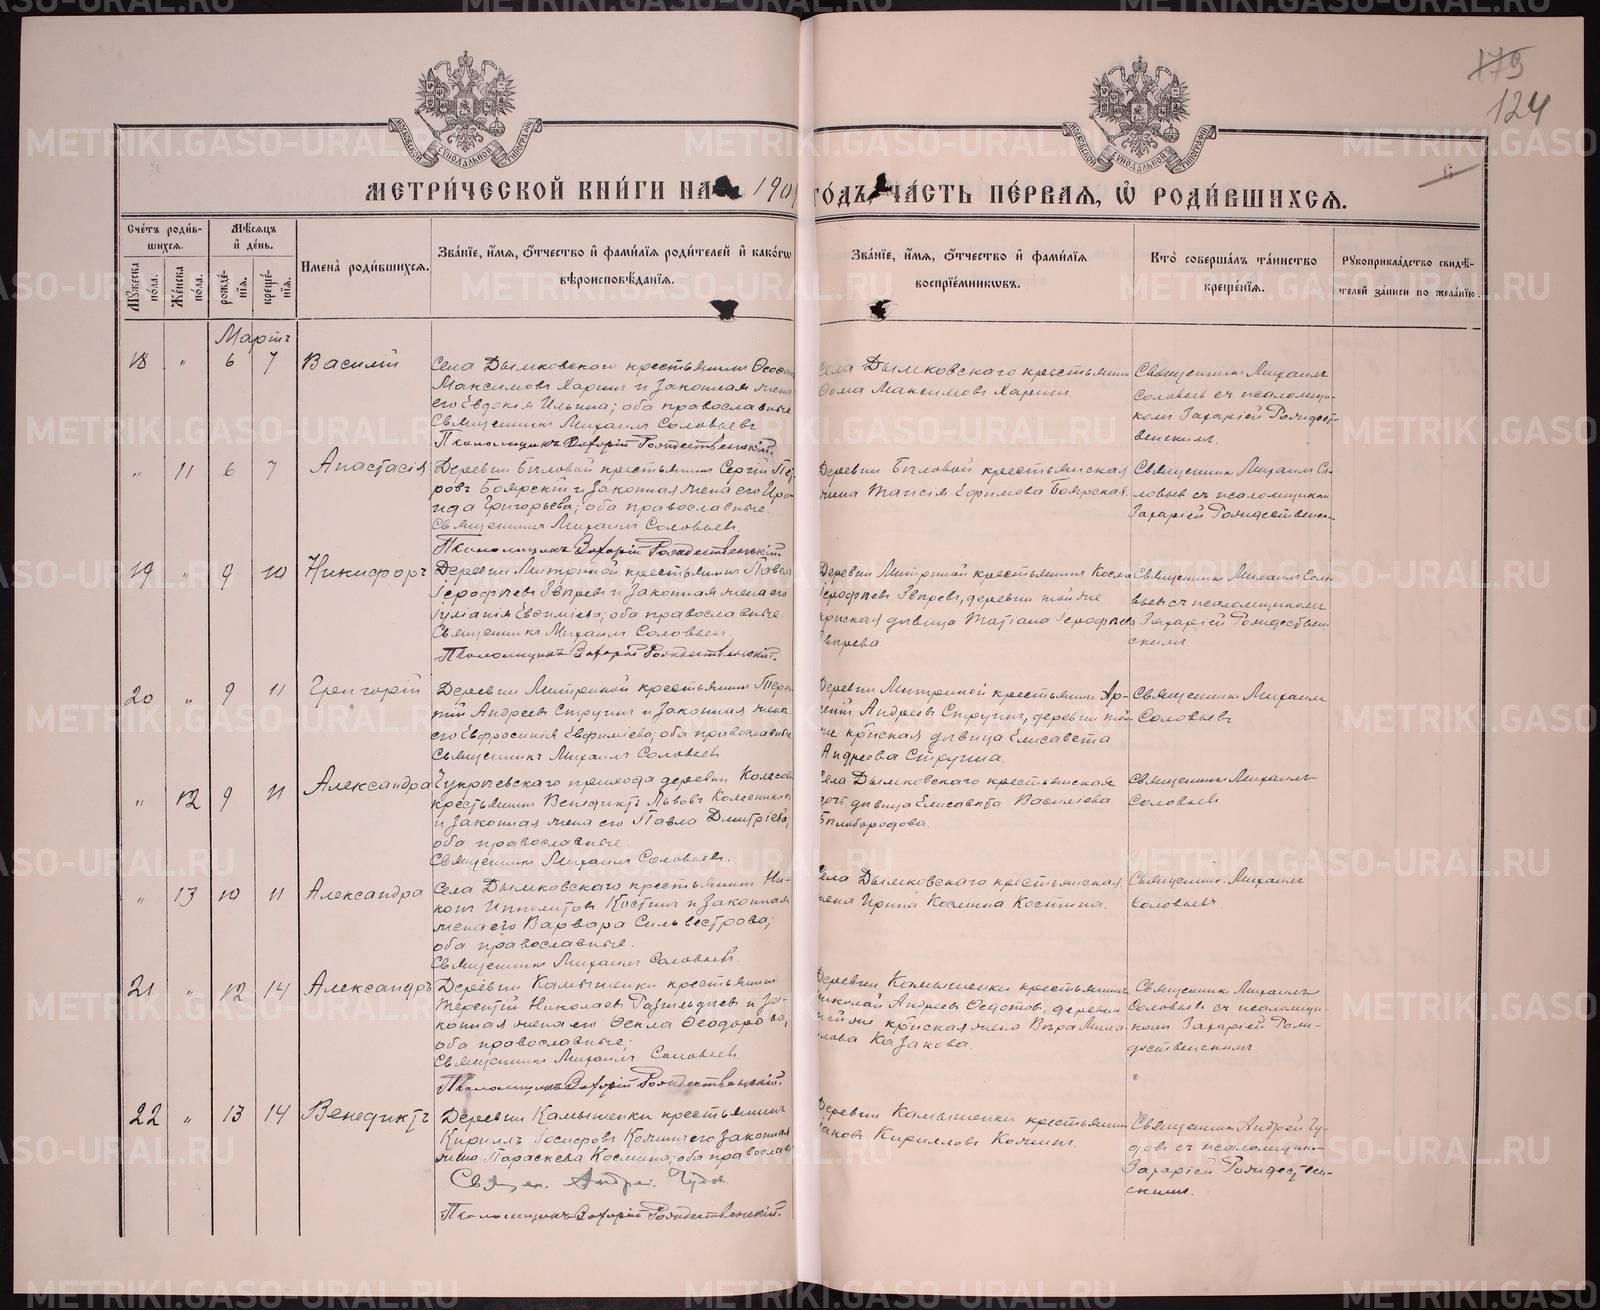 179
124
МОСКОВСКОЙ СѴНОДАЛЬНОЙ ТИПОГРАФІИ
МОСКОВСКОЙ СѴНОДАЛЬНОЙ ТИПОГРАФІИ
МЕТРИ́ЧЕСКОЙ КНИ́ГИ НА 190 ГО́ДЪ, ЧА́СТЬ ПЕ́РВАЯ, Ѽ РОДИ́ВШИХСЯ.
Сче́тъ роди́в-
шихся.
Му́жеска по́ла.
Же́нска по́ла.
Мѣ́сяцъ и҆ де́нь.
рожде́нїя.
креще́нїя.
И҆мена̀ роди́вшихся.
Зва́нїе, и҆́мя, ѻ҆́тчество и҆ фами́лїя роди́телей и҆ како́гѡ
вѣроисповѣ́данїя.
Зва́нїе, и҆́мя, ѻ҆́тчество и҆ фами́лїя
воспрїе́мникѡвъ.
Кто̀ соверша́лъ та́инство
креще́нїя.
Рꙋкоприкла́дство свидѣ́-
телей за́писи по жела́нїю.
Мартъ
18 " 6 7 Василій
Села Дымковскаго крестьянинъ
Максимовъ Харинъ и законная жена
его Евдокія Ильина; оба православные
Священникъ Михаилъ Соловьевъ
Псаломщикъ Захарій Рождественскій.
Села Дымковскаго крестьянинъ
Фома Максимовъ Харинъ.
Священникъ Михаилъ
Соловьевъ съ псаломщи-
комъ Захаріей Рождест-
венскимъ.
" 11 6 7 Анастасія
Деревни Быловой крестьянинъ Сергій Пет-
ровъ Боярскій и законная жена его Иро-
ида Григорьева; оба православные.
Священникъ Михаилъ Соловьевъ.
Псаломщикъ Захарій Рождественскій.
Деревни Быловой крестьянская
жена Таисія Ефимова Боярская.
Священникъ Михаилъ Со-
ловьевъ съ псаломщикомъ
Захаріей Рождественск-
19 " 9 10 Никифоръ
Деревни Митриной крестьянинъ Павелъ
Ерофѣевъ Звѣревъ и законная жена его
Іуліанія Евфиміева; оба православные.
Священникъ Михаилъ Соловьевъ.
Псаломщикъ Захарій Рождественскій.
Деревни Митриной крестьянинъ Косма
Ерофѣевъ Звѣревъ, деревни той же
крнская дѣвица Татіана Ерофѣева
Звѣрева
Священникъ Михаилъ Соло-
вьевъ съ псаломщикомъ
Захаріей Рождествен-
скимъ.
20 " 9 11 Григорій
Деревни Митриной крестьянинъ
Андреевъ Стругинъ и законная жена
его Евфросинія Евфиміева; оба православные
Священникъ Михаилъ Соловьевъ
Деревни Митриной крестьянинъ Ар-
Андреевъ Стругинъ, деревни той
же крнская дѣвица Елисавета
Андреева Стругина.
Священникъ Михаилъ
Соловьевъ
" 12 9 11 Александра
прихода деревни
крестьянинъ Венедиктъ Львовъ Колесниковъ
и законная жена его Павла Дмитріева;
оба православные.
Священникъ Михаилъ Соловьевъ.
Села Дымковскаго крестьянская
дочь дѣвица Елисавета Василіева
Бѣлобородова.
Священникъ Михаилъ
Соловьевъ
" 13 10 11 Александра
Села Дымковскаго крестьянинъ Ни-
конъ Ипполитовъ Костинъ и законная
жена его Варвара Сильвестрова;
оба православные.
Священникъ Михаилъ Соловьевъ.
Села Дымковскаго крестьянская
жена Ирина Космина Костина.
Священникъ Михаилъ
Соловьевъ.
21 " 12 14 Александръ
Деревни Камышенки крестьянинъ
Терентій Николаевъ и за-
конная жена его Ѳекла Ѳеодорова;
оба православные;
Священникъ Михаилъ Соловьевъ
Псаломщикъ Захарій Рождественскій.
Деревни Камышенки крестьянинъ
Николай Андреевъ Ѳедотовъ, деревни
той же крнская жена Вѣра
Казакова.
Священникъ Михаилъ
Соловьевъ съ псаломщи-
комъ Захаріей Рож-
дественскимъ
22 " 13 14 Венедиктъ
Деревни Камышенки крестьянинъ
Кириллъ Кочинъ его законная
жена Параскева Космина; оба православ
Священ. Андрей Чудов
Псаломщикъ Захарій Рождественскій.
Деревни Камышенки крестьянинъ
Кирилловъ Кочинъ.
Священникъ Андрей Чу-
довъ съ псаломщик-
Захаріей Рождествен-
скимъ.
METRIKI.GASO-URAL.RU